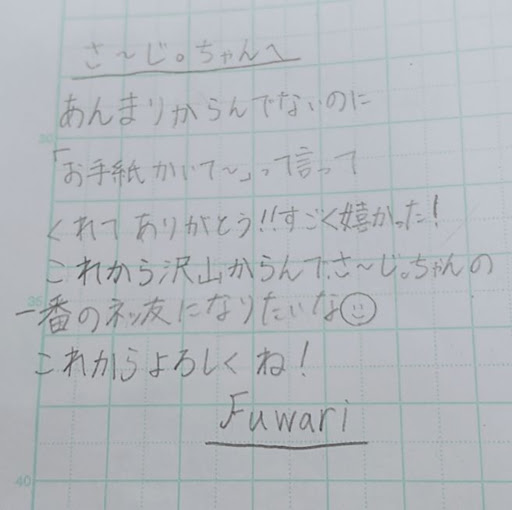 さ〜じ。ちゃんへ
あんまりからんでないのに
「お手紙かいて〜」って言って
くれてありがとう!!すごく嬉かった!
これから沢山からんで、さ〜じ。ちゃんの
一番のネッ友になりたいな☺
これからよろしくね!
Fuwari
30
35
40